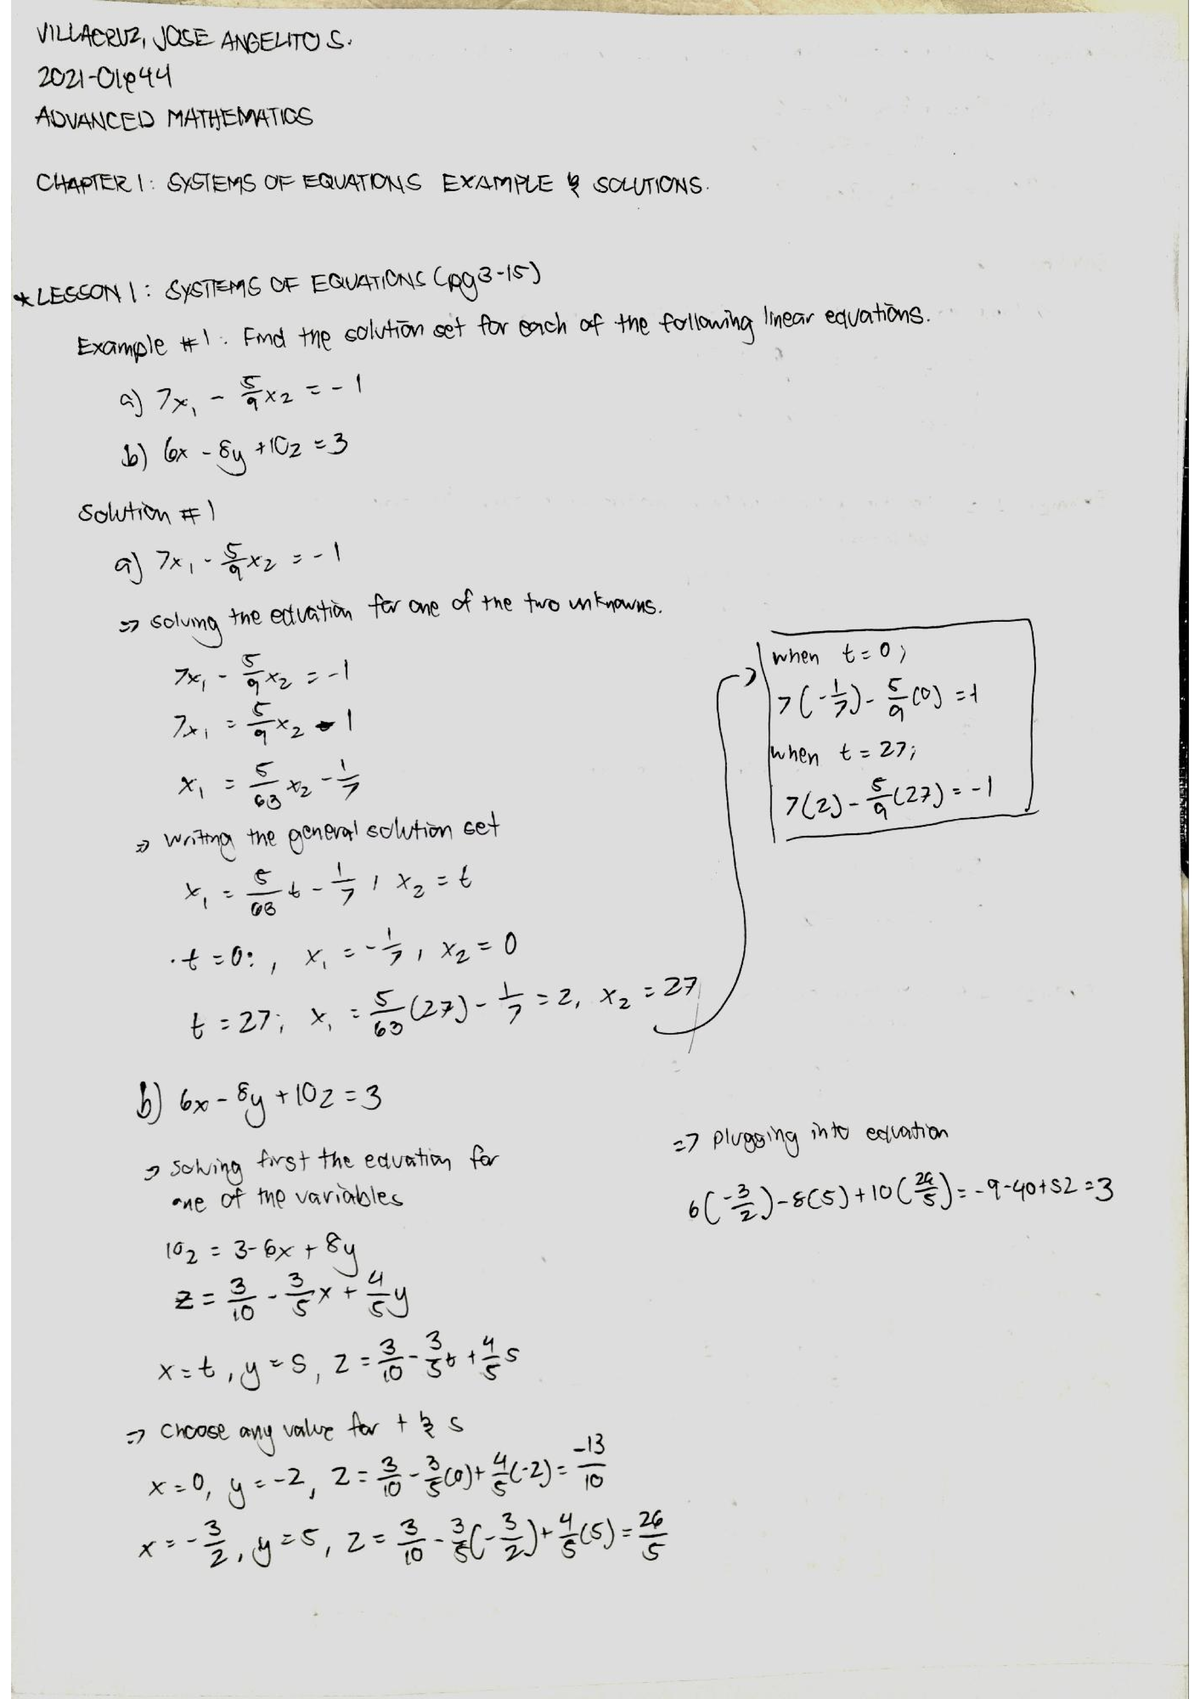 VILLACRUZ, JOSE ANGELITO S.
2021-01044
ADVANCED MATHEMATICS
CHAPTER 1: SYSTEMS OF EQUATIONS EXAMPLE & SOLUTIONS.
* LESSON 1: SYSTEMS OF EQUATIONS (pg 3-15)
Example #1: Find the solution set for each of the following linear equations.
a) 7x₁ - 5/9 x₂ = -1
b) 6x - 8y + 10z = 3
Solution #1
a) 7x₁ - 5/9 x₂ = -1
=> solving the equation for one of the two unknowns.
7x₁ - 5/9 x₂ = -1
7x₁ = 5/9 x₂ - 1
x₁ = 5/63 x₂ - 1/7
=> writing the general solution set
x₁ = 5/63 t - 1/7, x₂ = t
· t = 0:, x₁ = -1/7, x₂ = 0
t = 27; x₁ = 5/63 (27) - 1/7 = 2, x₂ = 27
when t = 0;
7(-1/7) - 5/9 (0) = -1
when t = 27;
7(2) - 5/9 (27) = -1
b) 6x - 8y + 10z = 3
=> solving first the equation for
one of the variables
10z = 3 - 6x + 8y
z = 3/10 - 3/5 x + 4/5 y
x = t, y = s, z = 3/10 - 3/5 t + 4/5 s
=> choose any value for t & s
x = 0, y = -2, z = 3/10 - 3/5 (0) + 4/5 (-2) = -13/10
x = -3/2, y = 5, z = 3/10 - 3/5 (-3/2) + 4/5 (5) = 26/5
=> plugging into equation
6(-3/2) - 8(5) + 10(26/5) = -9 - 40 + 52 = 3